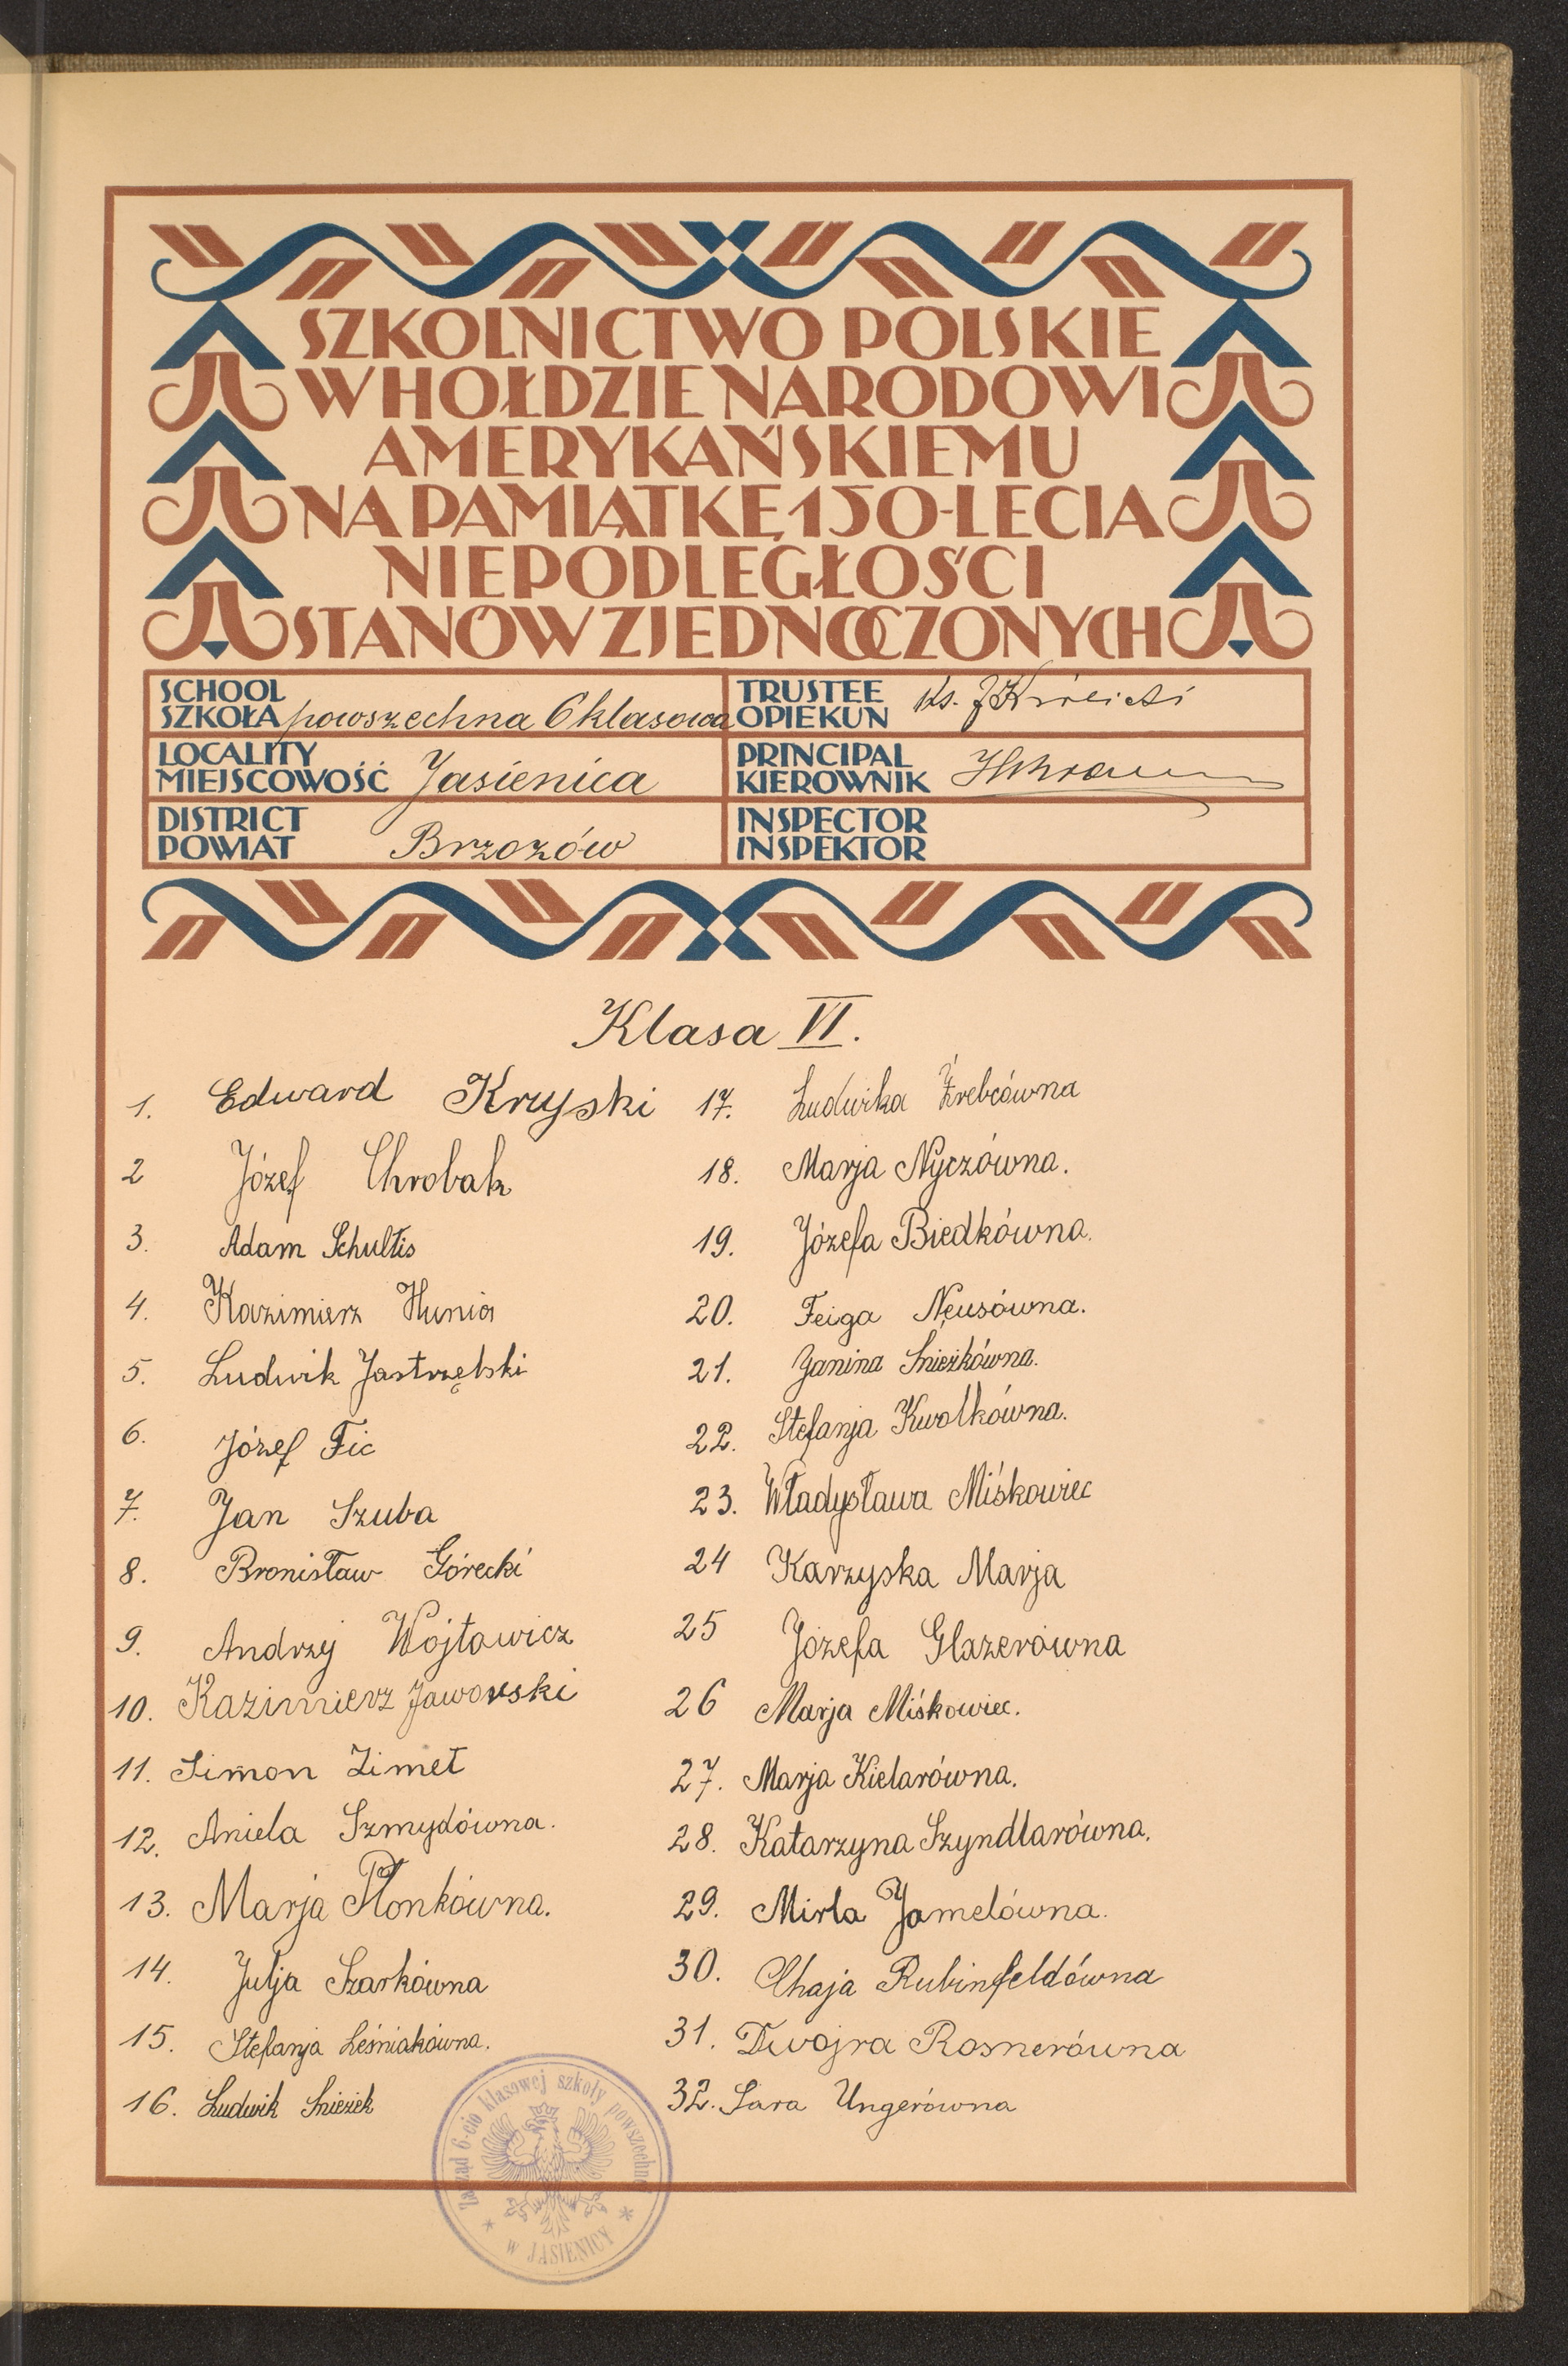 SZKOLNICTWO POLSKIE
W HOŁDZIE NARODOWI
AMERYKAŃSKIEMU
NA PAMIĄTKĘ 150-LECIA
NIEPODLEGŁOŚCI
STANÓW ZJEDNOCZONYCH
SCHOOL
SZKOŁA powszechna 6 klasowa
TRUSTEE
OPIEKUN Ks.
LOCALITY
MIEJSCOWOŚĆ Jasienica
PRINCIPAL
KIEROWNIK
DISTRICT
POWIAT Brzozów
INSPECTOR
INSPEKTOR
Klasa VI.
1. Edward Kryski
2 Józef Chrobak
3. Adam Schultis
4. Kazimierz Hunia
5. Ludwik Jastrzębski
6. Józef Fic
7. Jan Szuba
8. Bronisław Górecki
9. Andrzej Wojtowicz
10. Kazimierz Jaworski
11. Simon Zimet
12. Aniela Szmydówna.
13. Marja Płonkówna.
14. Julja Szarkówna
15. Stefanja Leśniakówna.
16. Ludwik Śnieżek
17. Ludwika Źrebcówna
18. Marja Nyczówna.
19. Józefa Biedkówna.
20. Feiga Neusówna.
21. Janina Śnieżkówna.
22. Stefanja Kwolkówna.
23. Władysława Miśkowiec
24 Karzyska Marja
25 Józefa Glazerówna
26 Marja Miśkowiec.
27. Marja Kielarówna.
28. Katarzyna Szyndlarówna.
29. Mirla Jamelówna.
30. Chaja Rubinfeldówna
31. Dwojra Rosnerówna
32. Sara Ungerówna
Zarząd 6-cio klasowej szkoły powszechnej
w JASIENICY